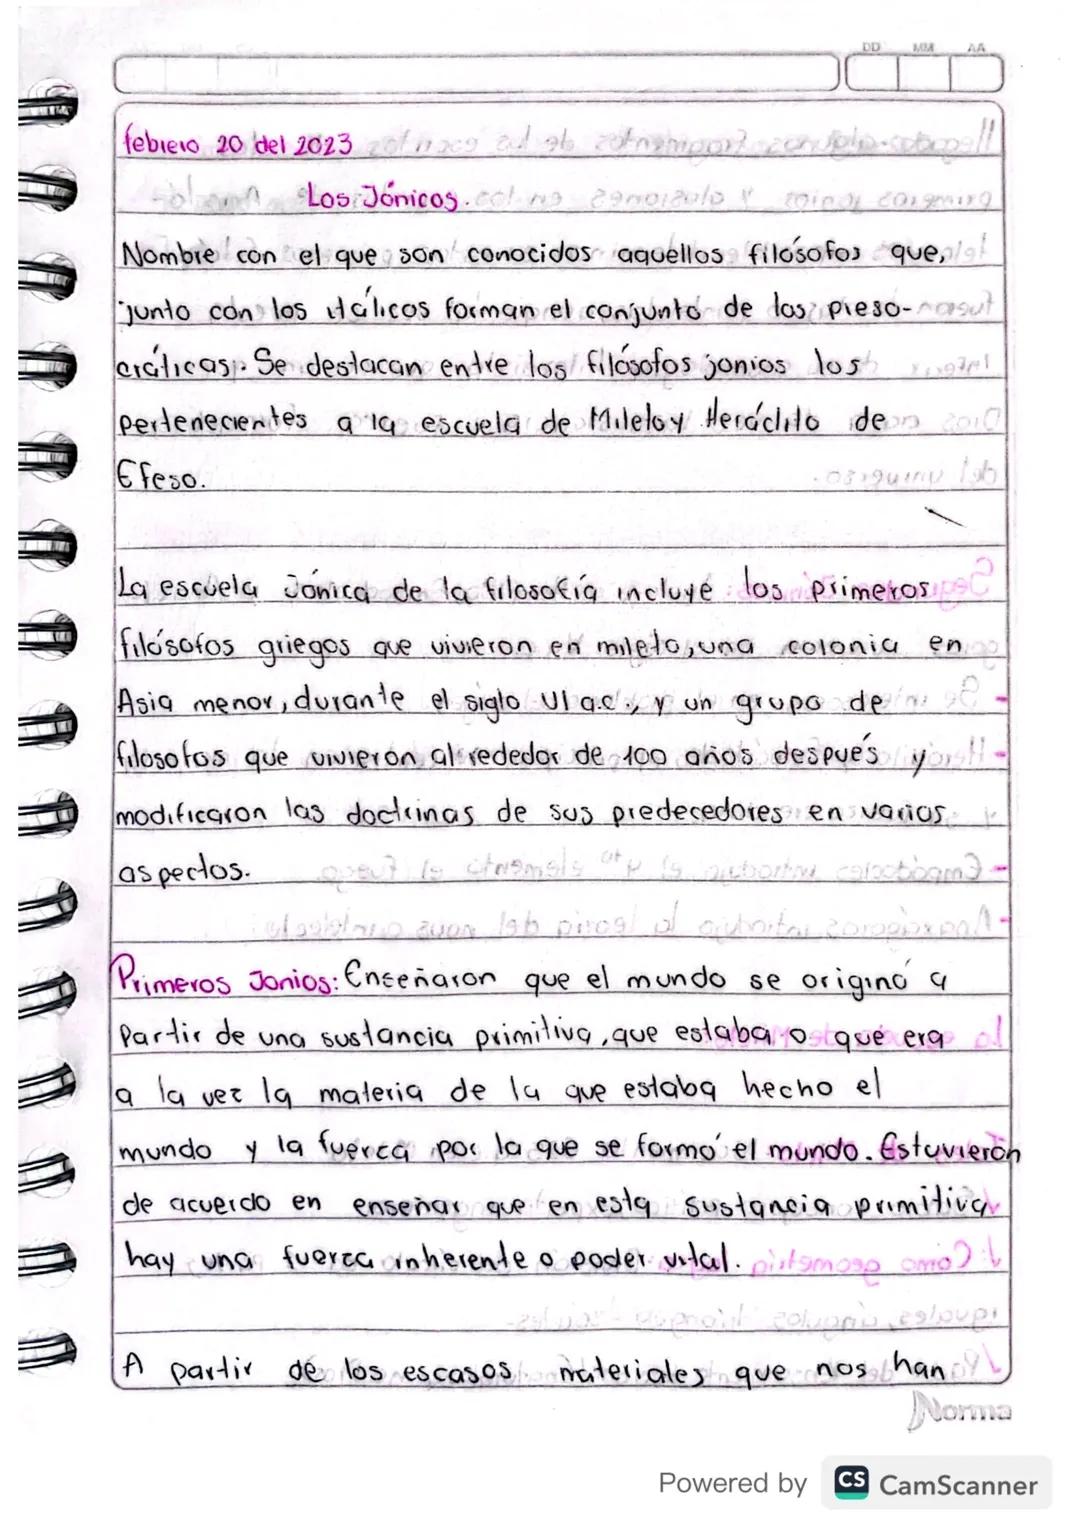 DD MM AA
febrero 20 del 2023
Los Jónicos.
Nombre con el que son conocidos aquellos filósofos que,
junto con los itálicos forman el conjunto de los preso-
cráticas. Se destacan entre los filósofos jonios los
pertenecientes a la escuela de Mileto y Heráclito de
Efeso.
La escuela Jónica de la filosofía incluye los primeros
filósofos griegos que vivieron en mileto, una colonia en
Asia menor, durante el siglo VI a.c., y un grupo de
filosofos que vivieron al rededor de 100 años después y
modificaron las doctrinas de sus predecedores en varios
aspectos.
Primeros Jonios: Enseñaron que el mundo se originó a
Partir de una sustancia primitiva, que estaba o que era
a la vez la materia de la que estaba hecho el
mundo y la fuerza por la que se formó el mundo. Estuvieron
de acuerdo en enseñar que en esta sustancia primitiva
hay una fuerza inherente o poder vital.
A partir de los escasos materiales que nos han
Norma
Powered by CS CamScanner